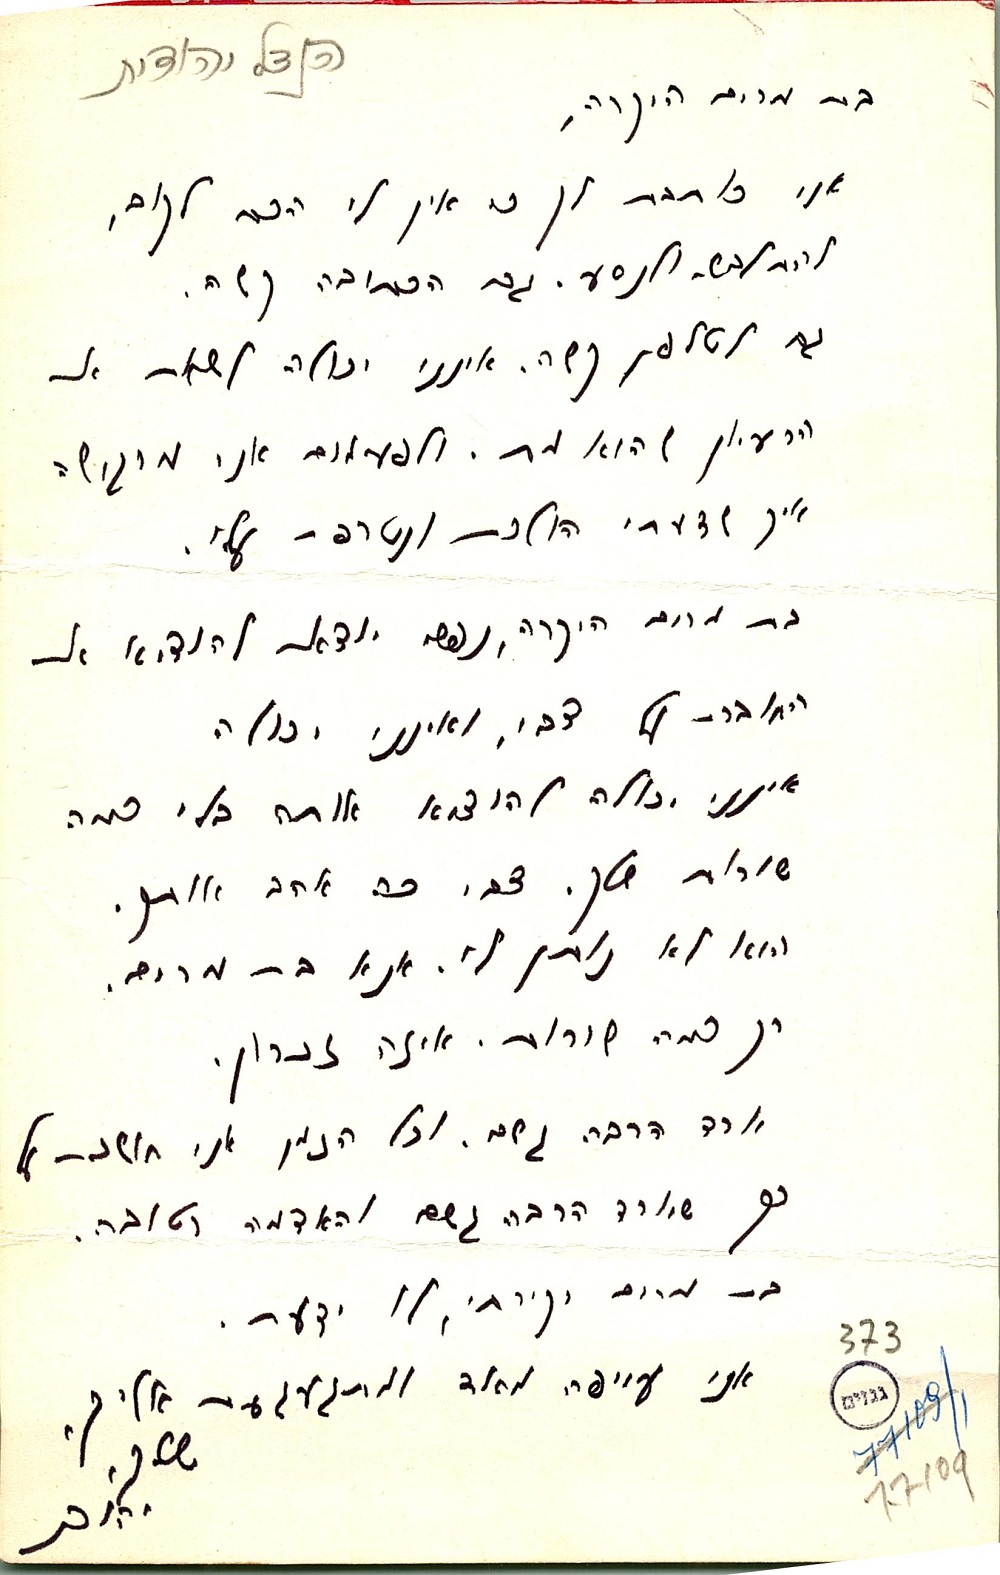 הנדל יהודית
בת מרים היקרה,
אני כותבת לך כי אין לי הכח לקום,
להתלבש ולנסע. גם הכתיבה קשה.
גם לטלפן קשה. אינני יכולה לשאת את
הרעיון שהוא מת. ולפעמים אני מרגישה
איך שדעתי הולכת ונטרפת עלי.
בת מרים היקרה, עומדת להוציא את
החוברת על צבי, ואינני יכולה
אינני יכולה להוציא אותה בלי כמה
שורות שלך. צבי כה אהב אותך.
הוא לא נותן לי. אנא בת מרים.
רק כמה שורות. איזה זכרון.
יורד הרבה גשם. וכל הזמן אני חושבת על
כך שיורד הרבה גשם והאדמה רטובה.
בת מרים יקירתי, לו ידעת.
אני עייפה מאד ומתגעגעת אליך,
שלך,
יהודית
373
גנזים
77109/1
77109